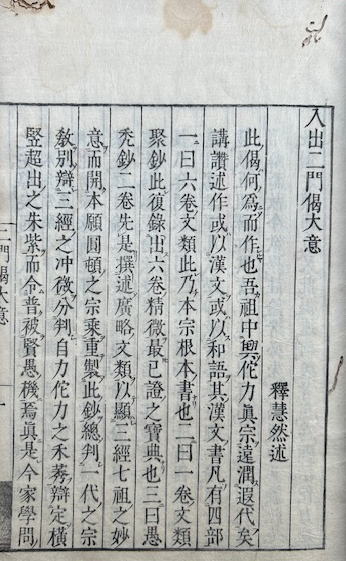 入出二門偈大意
釋慧然述
此偈何爲而作也吾祖中興佗力眞宗遠潤遐代矣
講讚述作或以漢文或以和語其漢文書凡有四部
一曰六卷文類此乃本宗根本書也二曰一卷文類
聚鈔此復錄出六卷精微最已證之寶典也三曰愚
禿鈔二卷先是撰述廣略文類以顯三經七祖之妙
意而開本願圓頓之宗乘重製此鈔總判一代之宗
教別辯三經之冲微分判自力佗力之禾莠辯定橫
竪超出之朱紫而令普被賢愚機焉眞是今家學問
二門偈大意
一